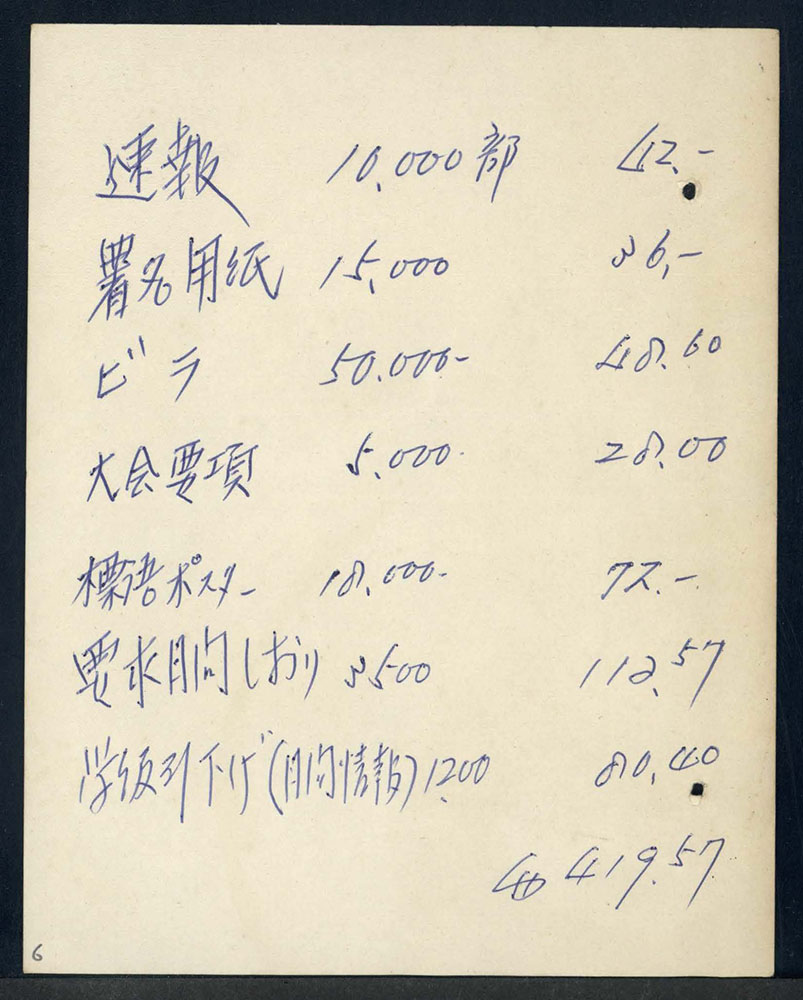 速報 10,000部 42.-
署名用紙 15,000 36,-
ビラ 50.000- 48.60
大会要項 5,000. 28.00
標語ポスター 18,000- 72.-
要求月間しおり 3500 112.57
学級引下げ(月間情報) 1,200 80,40
419.57
6